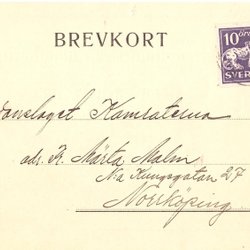 BREVKORT
10 ÖRE
SVERI
danslaget Kamraterna
adr. K. Märta Malm
N:a Kungsgatan 27
Norrköping